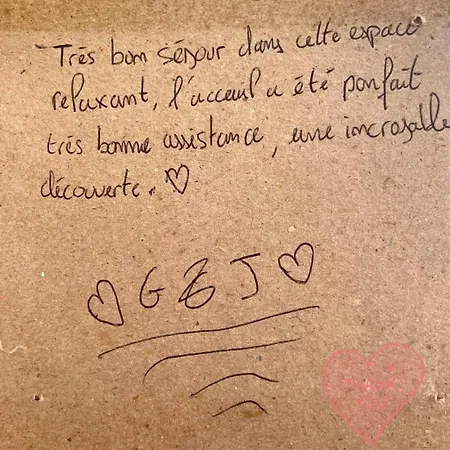 Très bon séjour dans cette espace
relaxant, l'acceuil a été parfait
très bonne assistance, une incroyable
découverte. ♡
♡ G & J ♡